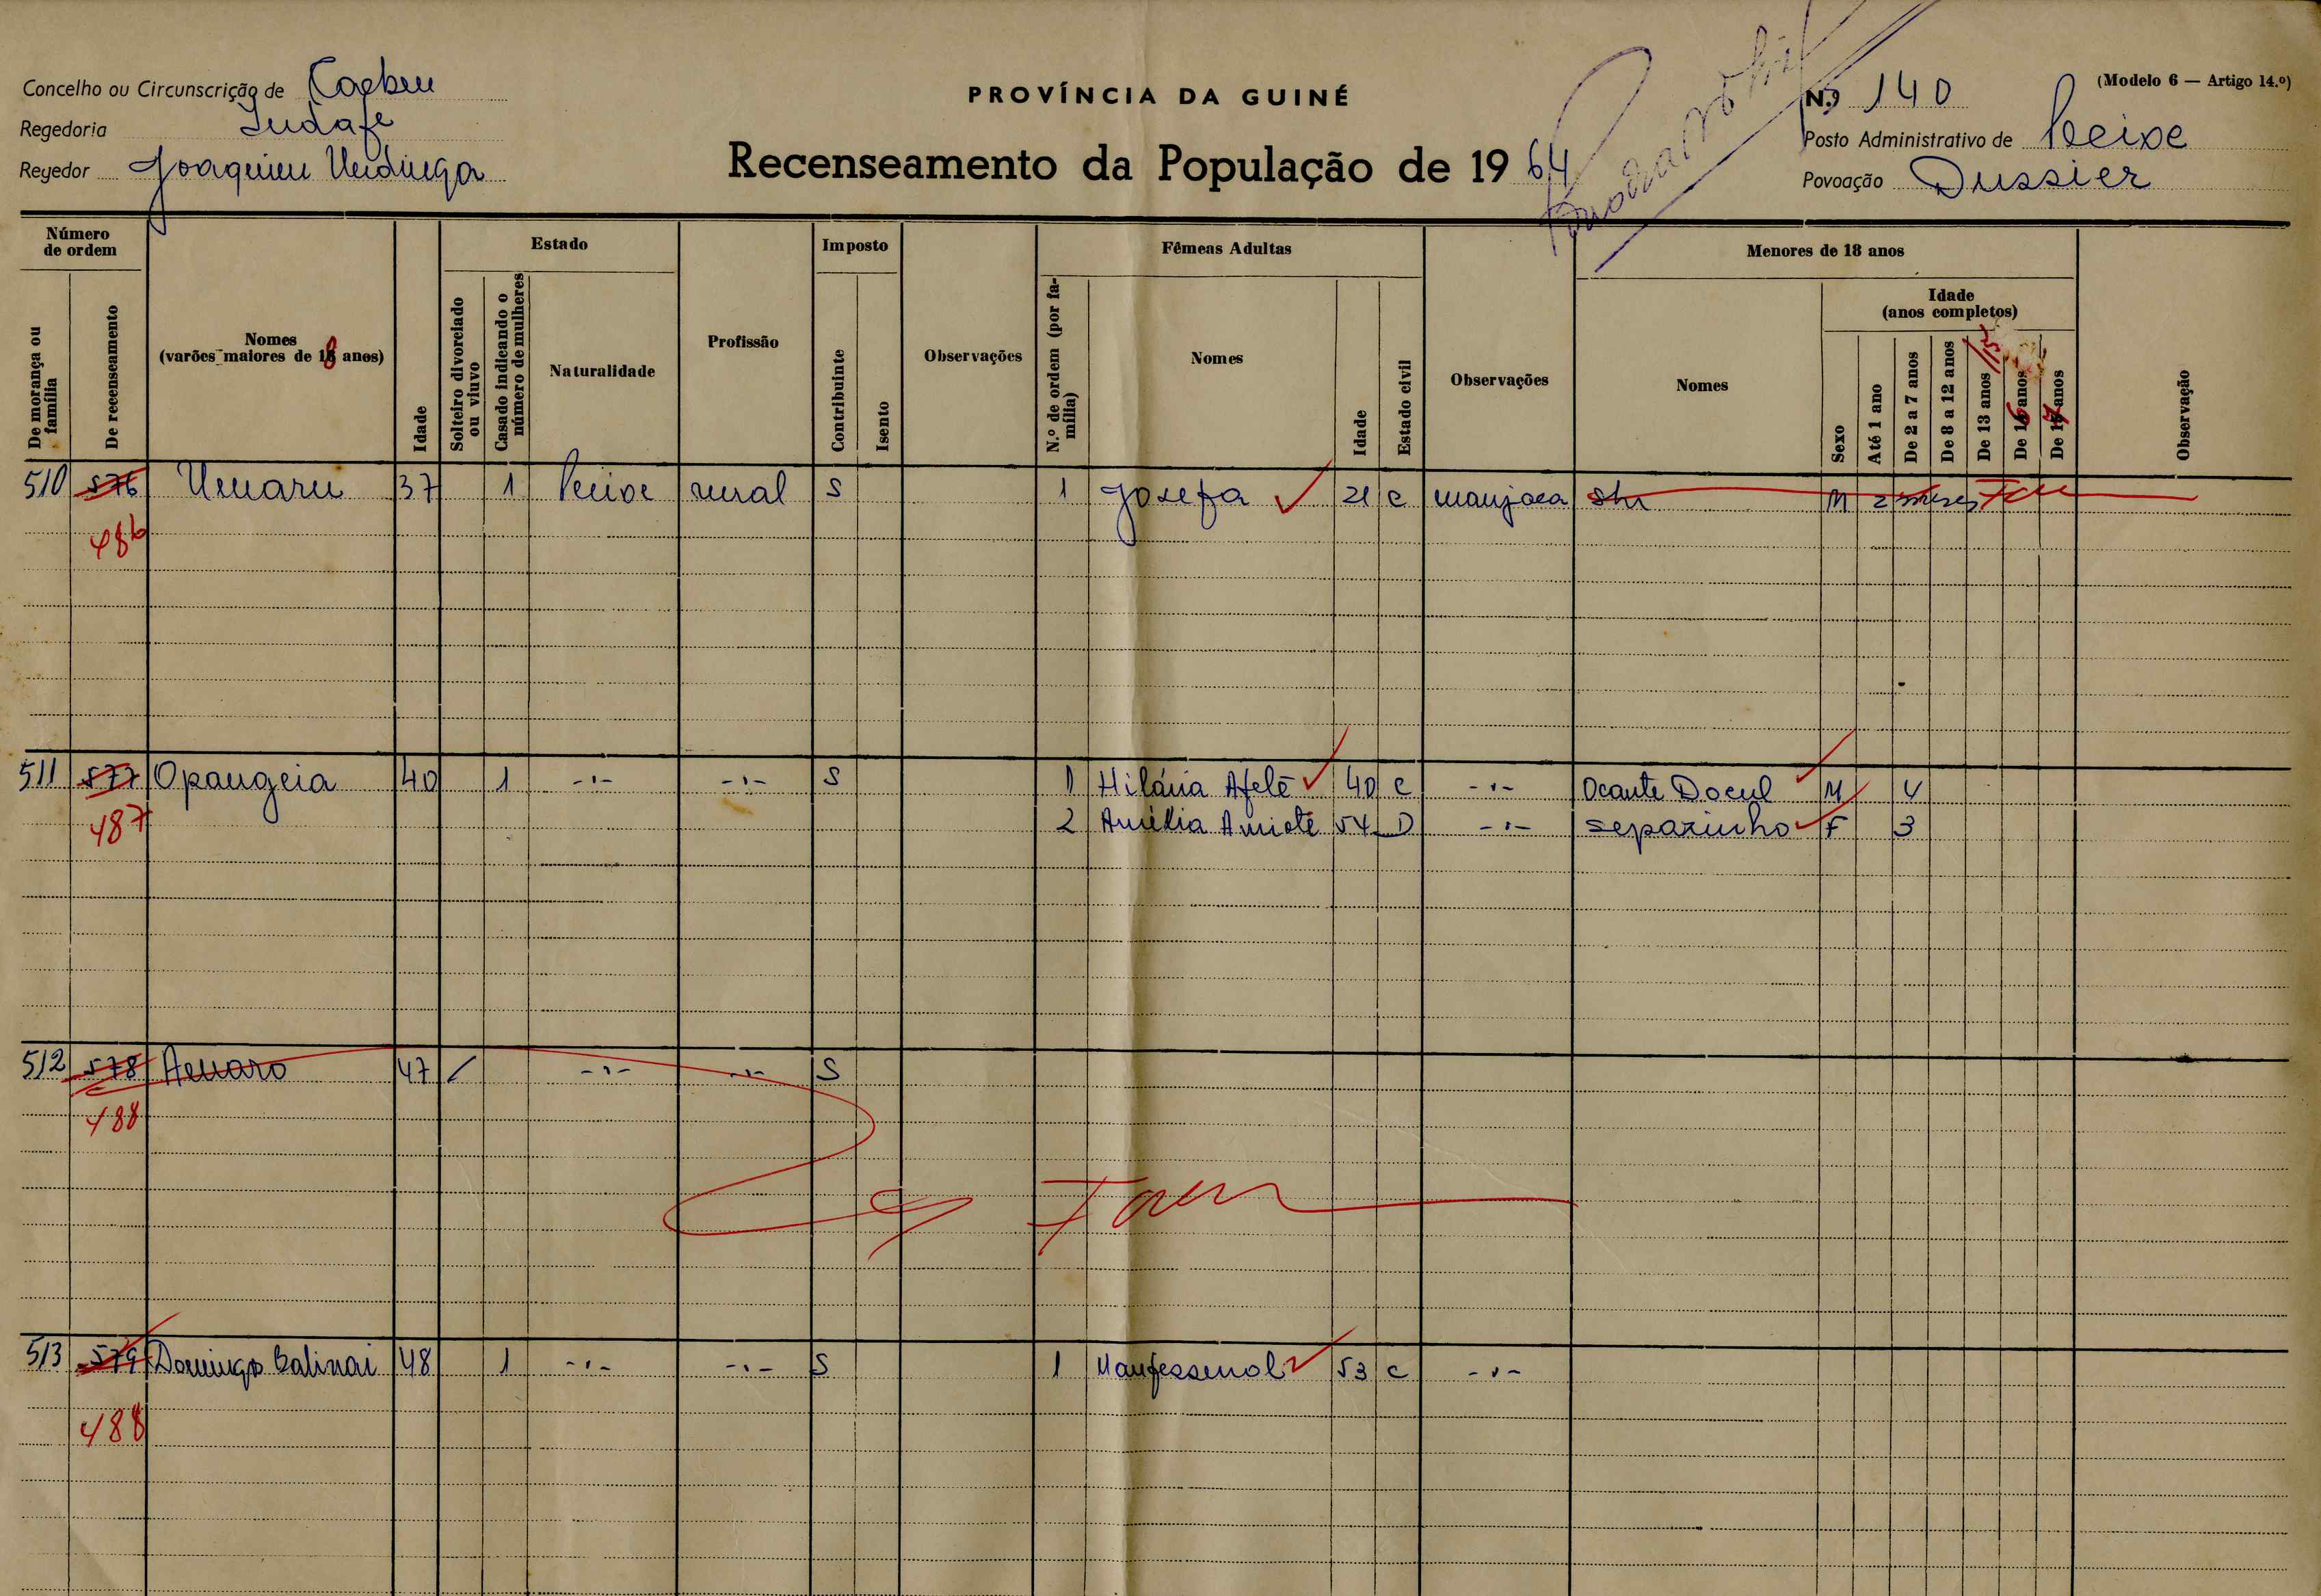 Concelho ou Circunscrição de
PROVÍNCIA DA GUINÉ
N.º 140
(Modelo 6 — Artigo 14.º)
Regedoria
Recenseamento da População de 1964
Posto Administrativo de
Regedor Joaquim
Povoação Dussier
Número de ordem
Estado
Imposto
Fêmeas Adultas
Menores de 18 anos
De morança ou família
De recenseamento
Nomes (varões maiores de 18 anos)
Idade
Solteiro divorciado ou viuvo
Casado indicando o número de mulheres
Naturalidade
Profissão
Contribuinte
Isento
Observações
N.º de ordem (por família)
Nomes
Idade
Estado civil
Observações
Nomes
Sexo
Idade (anos completos)
Até 1 ano
De 2 a 7 anos
De 8 a 12 anos
De 13 anos /15
De 16 anos
De 17 anos
Observação
510 576 37 1 rural S 1 Josefa 21 C manjaca M 2 meses
486
511 577 Opangeia 40 1 -,- -,- S 1 Hilária Afelé 40 C -,- Ocante Docul M 4
487 2 54 D -,- separinho F 3
512 578 47 -,- -,- S
488
513 579 Domingo Balinai 48 1 -,- -,- S 1 53 C -,-
488